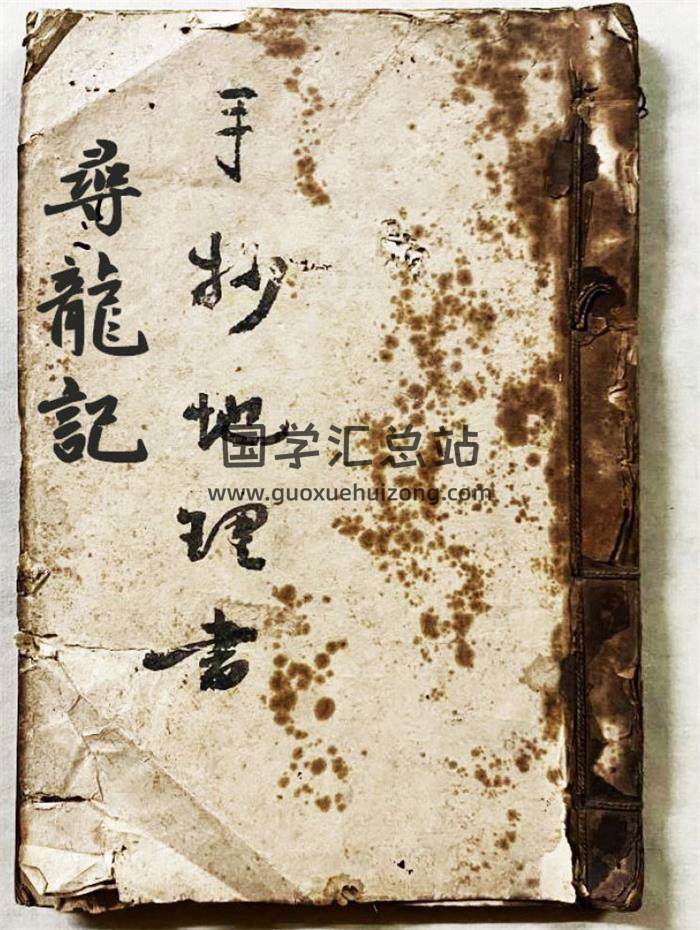 手抄地理書
尋龍記
国学汇总站
www.guoxuehuizong.com